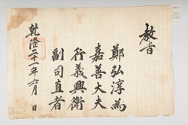 敎旨
鄭弘淳爲
嘉善大夫
行義興衛
副司直者
乾隆二十一年六月 日